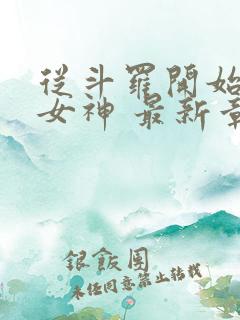 從斗羅開始
女神 最新章
銀飯團
未经同意禁止转载